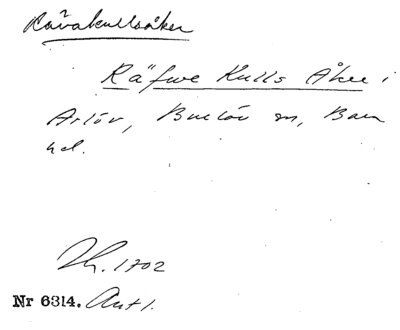 Rävakullaåker
Räfwe Kulls Åker i
Arlöv, Burlöv sn, Bara
hd.
Lh. 1702
Nr 6314. Ant 1.